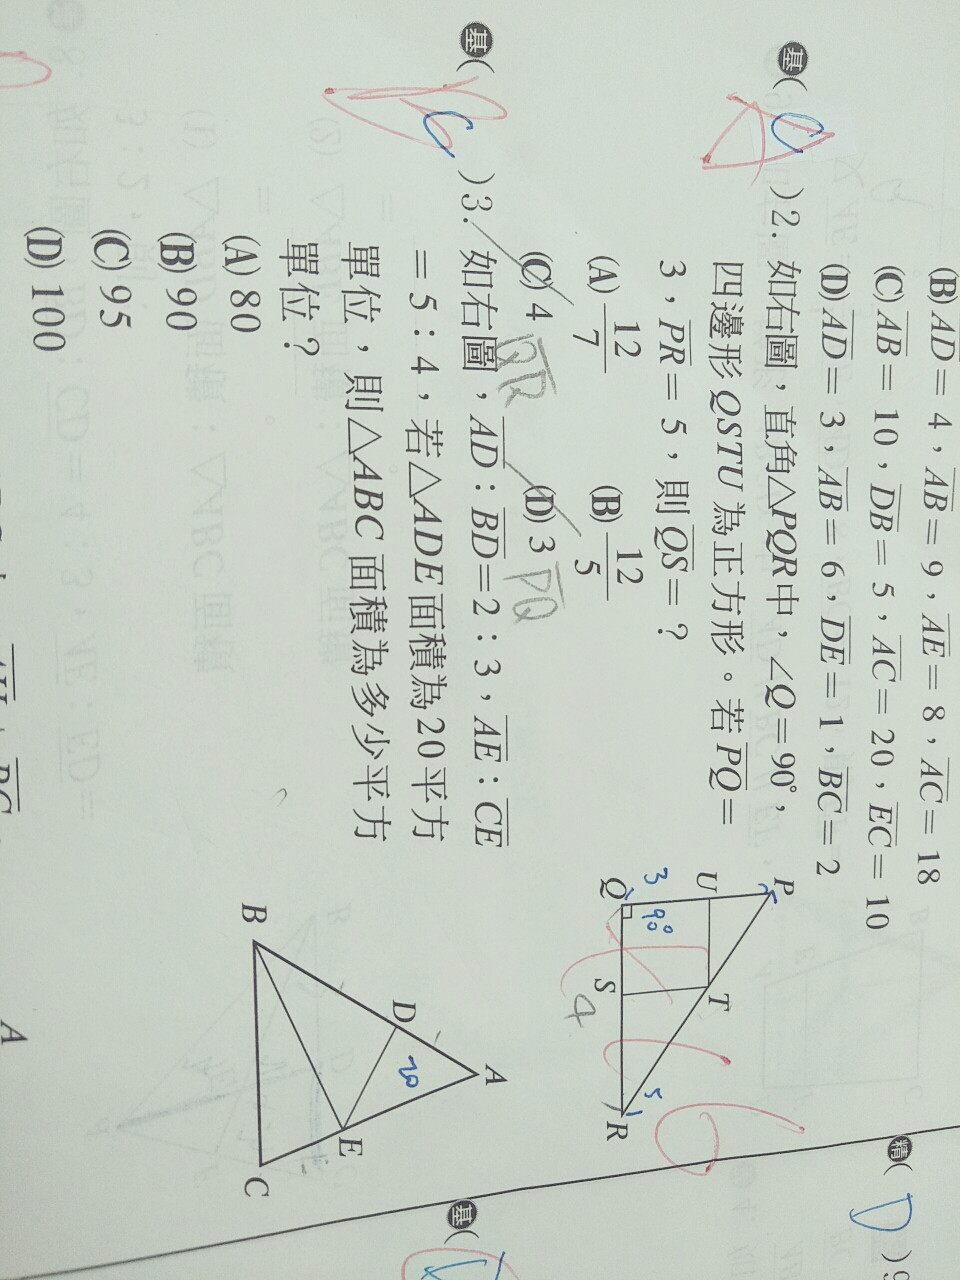 (B) AD = 4，AB = 9，AE = 8，AC = 18
(C) AB = 10，DB = 5，AC = 20，EC = 10
(D) AD = 3，AB = 6，DE = 1，BC = 2
基( C )2. 如右圖，直角△PQR中，∠Q = 90°，
四邊形QSTU為正方形。若PQ =
3，PR = 5，則QS = ?
(A) 12/7 (B) 12/5
(C) 4 QR (D) 3 PQ
P
U
T
3
90°
Q
S
4
5
R
基( C )3. 如右圖，AD：BD=2：3，AE：CE
= 5：4，若△ADE面積為20平方
單位，則△ABC面積為多少平方
單位？
(A) 80
(B) 90
(C) 95
(D) 100
A
D
20
E
B
C
精( D )
基(
A